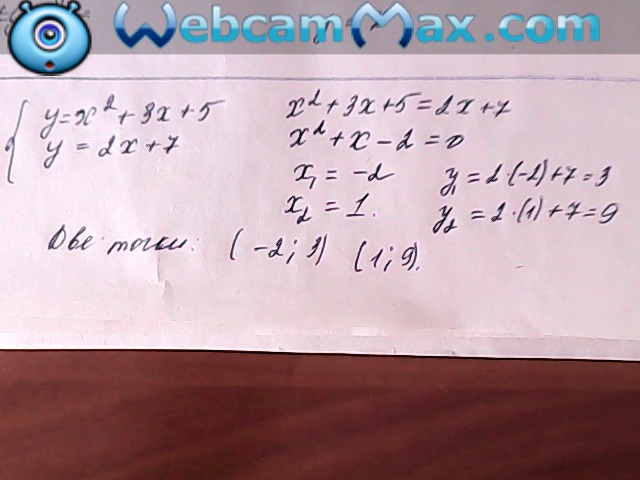 WebcamMax.com
y = x² + 3x + 5
y = 2x + 7
x² + 3x + 5 = 2x + 7
x² + x − 2 = 0
x₁ = −2
y₁ = 2·(−2) + 7 = 3
x₂ = 1.
y₂ = 2·(1) + 7 = 9
Две точки: (−2; 3) (1; 9).